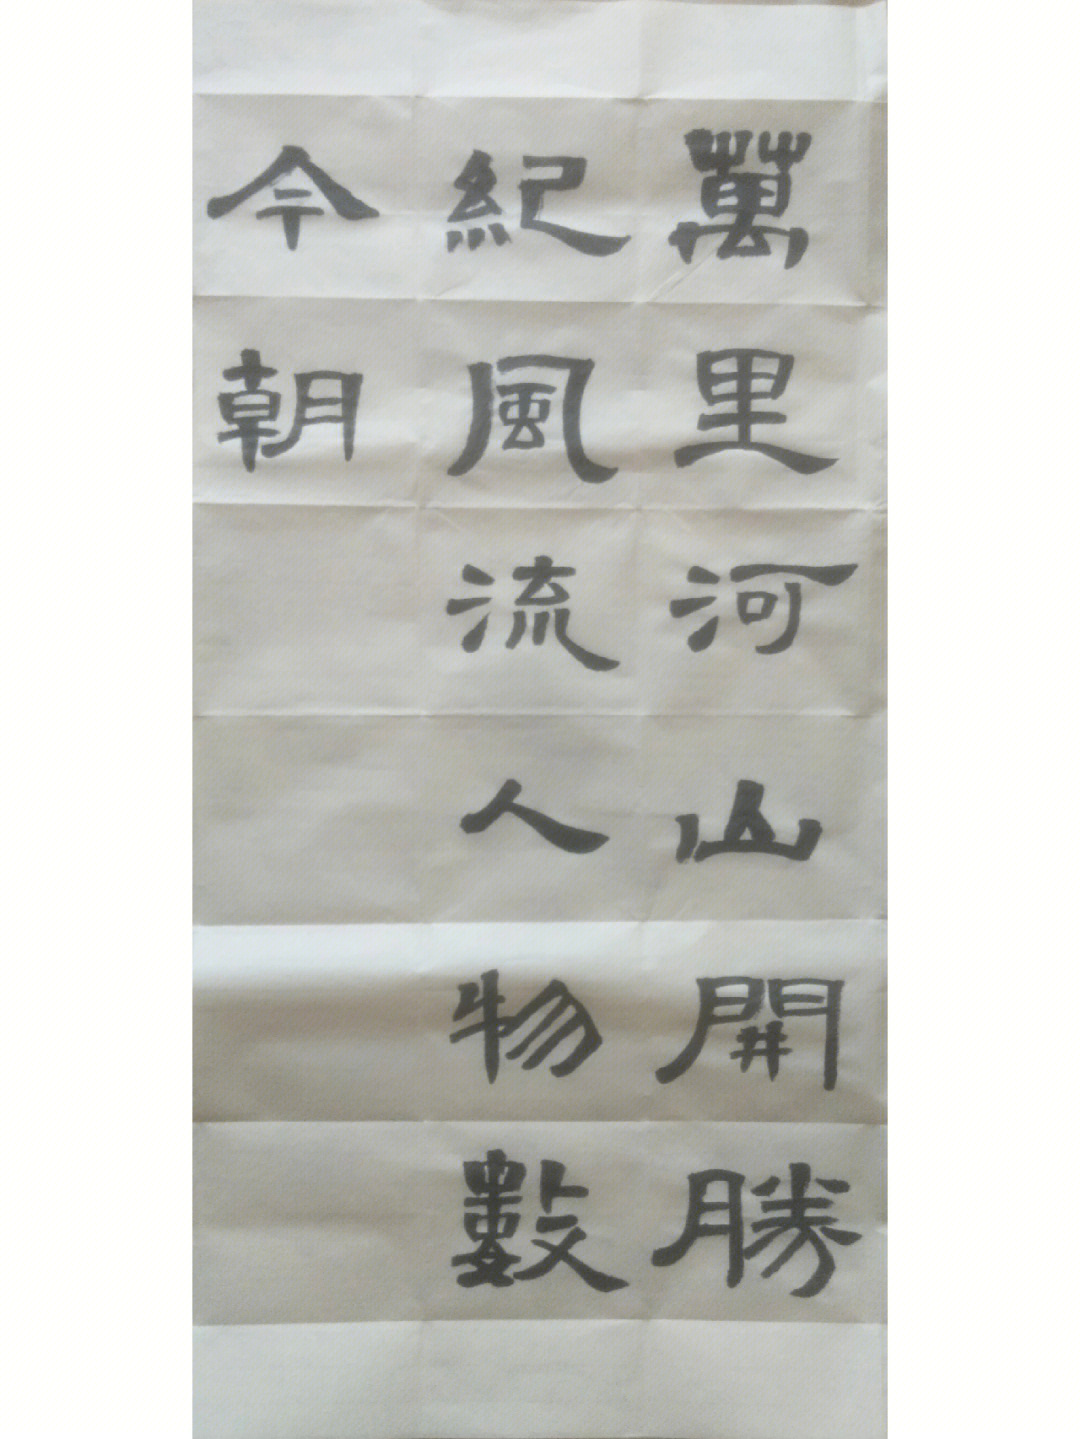 萬里河山開勝
紀風流人物數
今朝